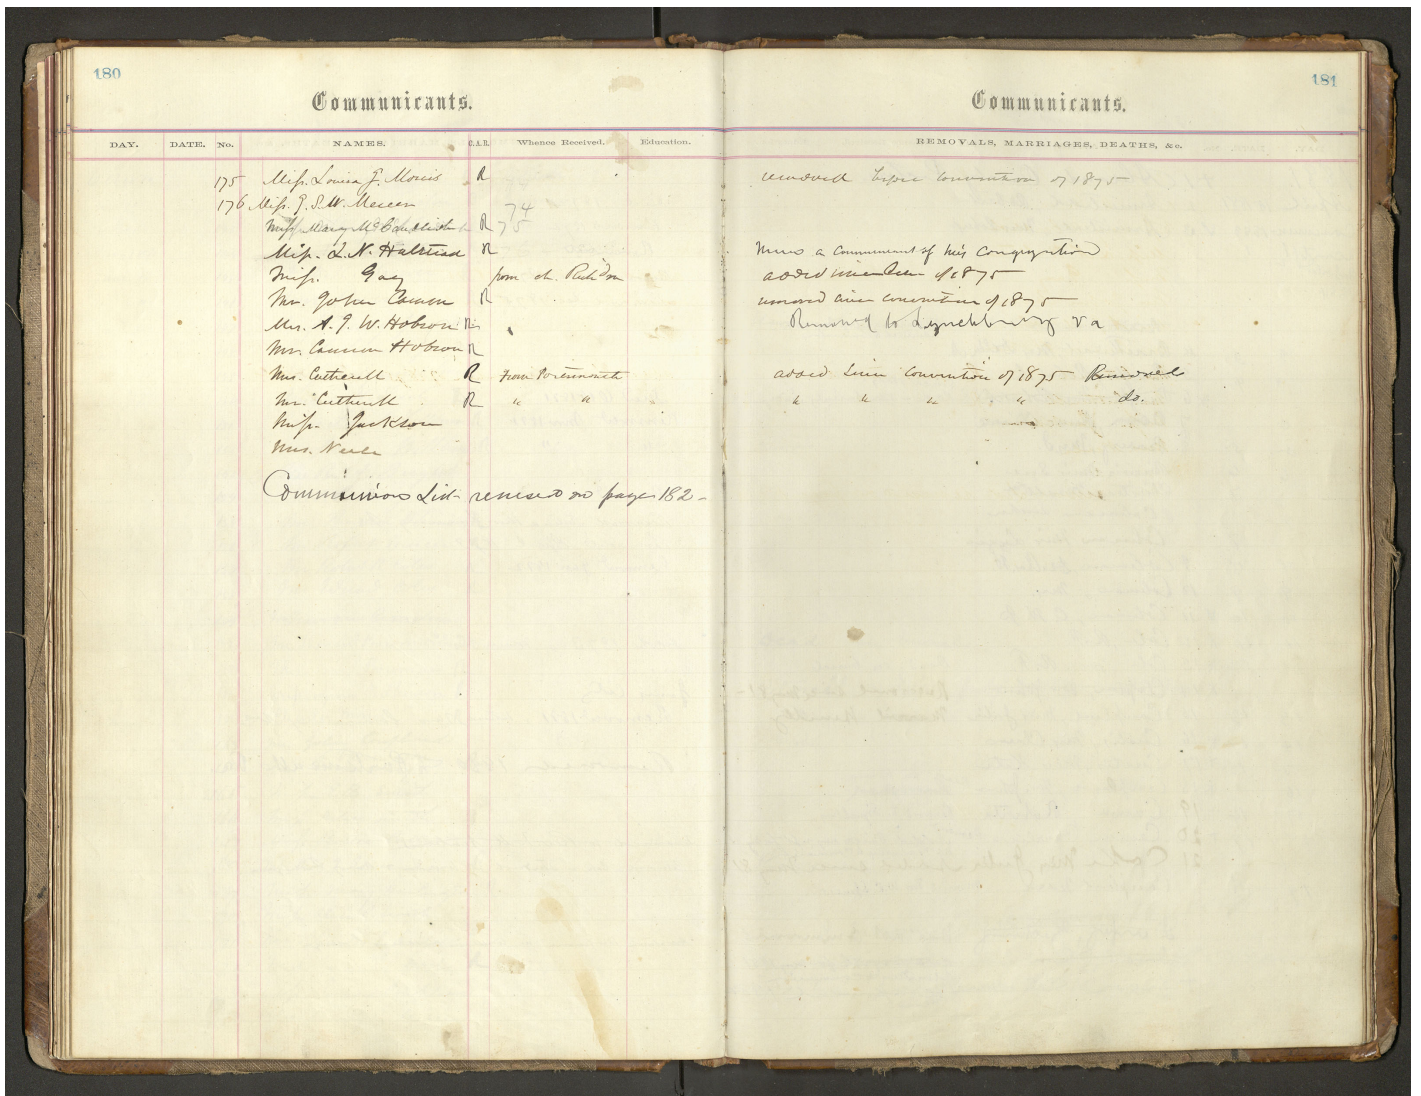 180
Communicants.
DAY. DATE. No. NAMES. C.A.R. Whence Received. Education.
175 Miss. Louisa J. Morris R
176 Miss. J. S. W. Mercer 74
Miss Mary McCandlish R 75
Miss. L. N. Halstead R
Miss. Gay from ch. Richdm
Mr. John Cannon R
Mrs. A. J. W. Hobson R
Mr. Cannon Hobson R
Mrs. Cutherell R From Portsmouth
Mr. Cutherell R " "
Miss. Jackson
Mrs.
Communicons List revised on page 182-
181
Communicants.
REMOVALS, MARRIAGES, DEATHS, &c.
removed before convention of 1875
Never a communicant of this Congregation
added since of 1875
removed since convention of 1875
Removed to Lynchburg Va
added Since Convention of 1875 Removed
" " " " do.